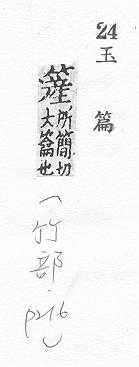 24
玉篇
簅
所簡切
大籥也
(竹部·p216)